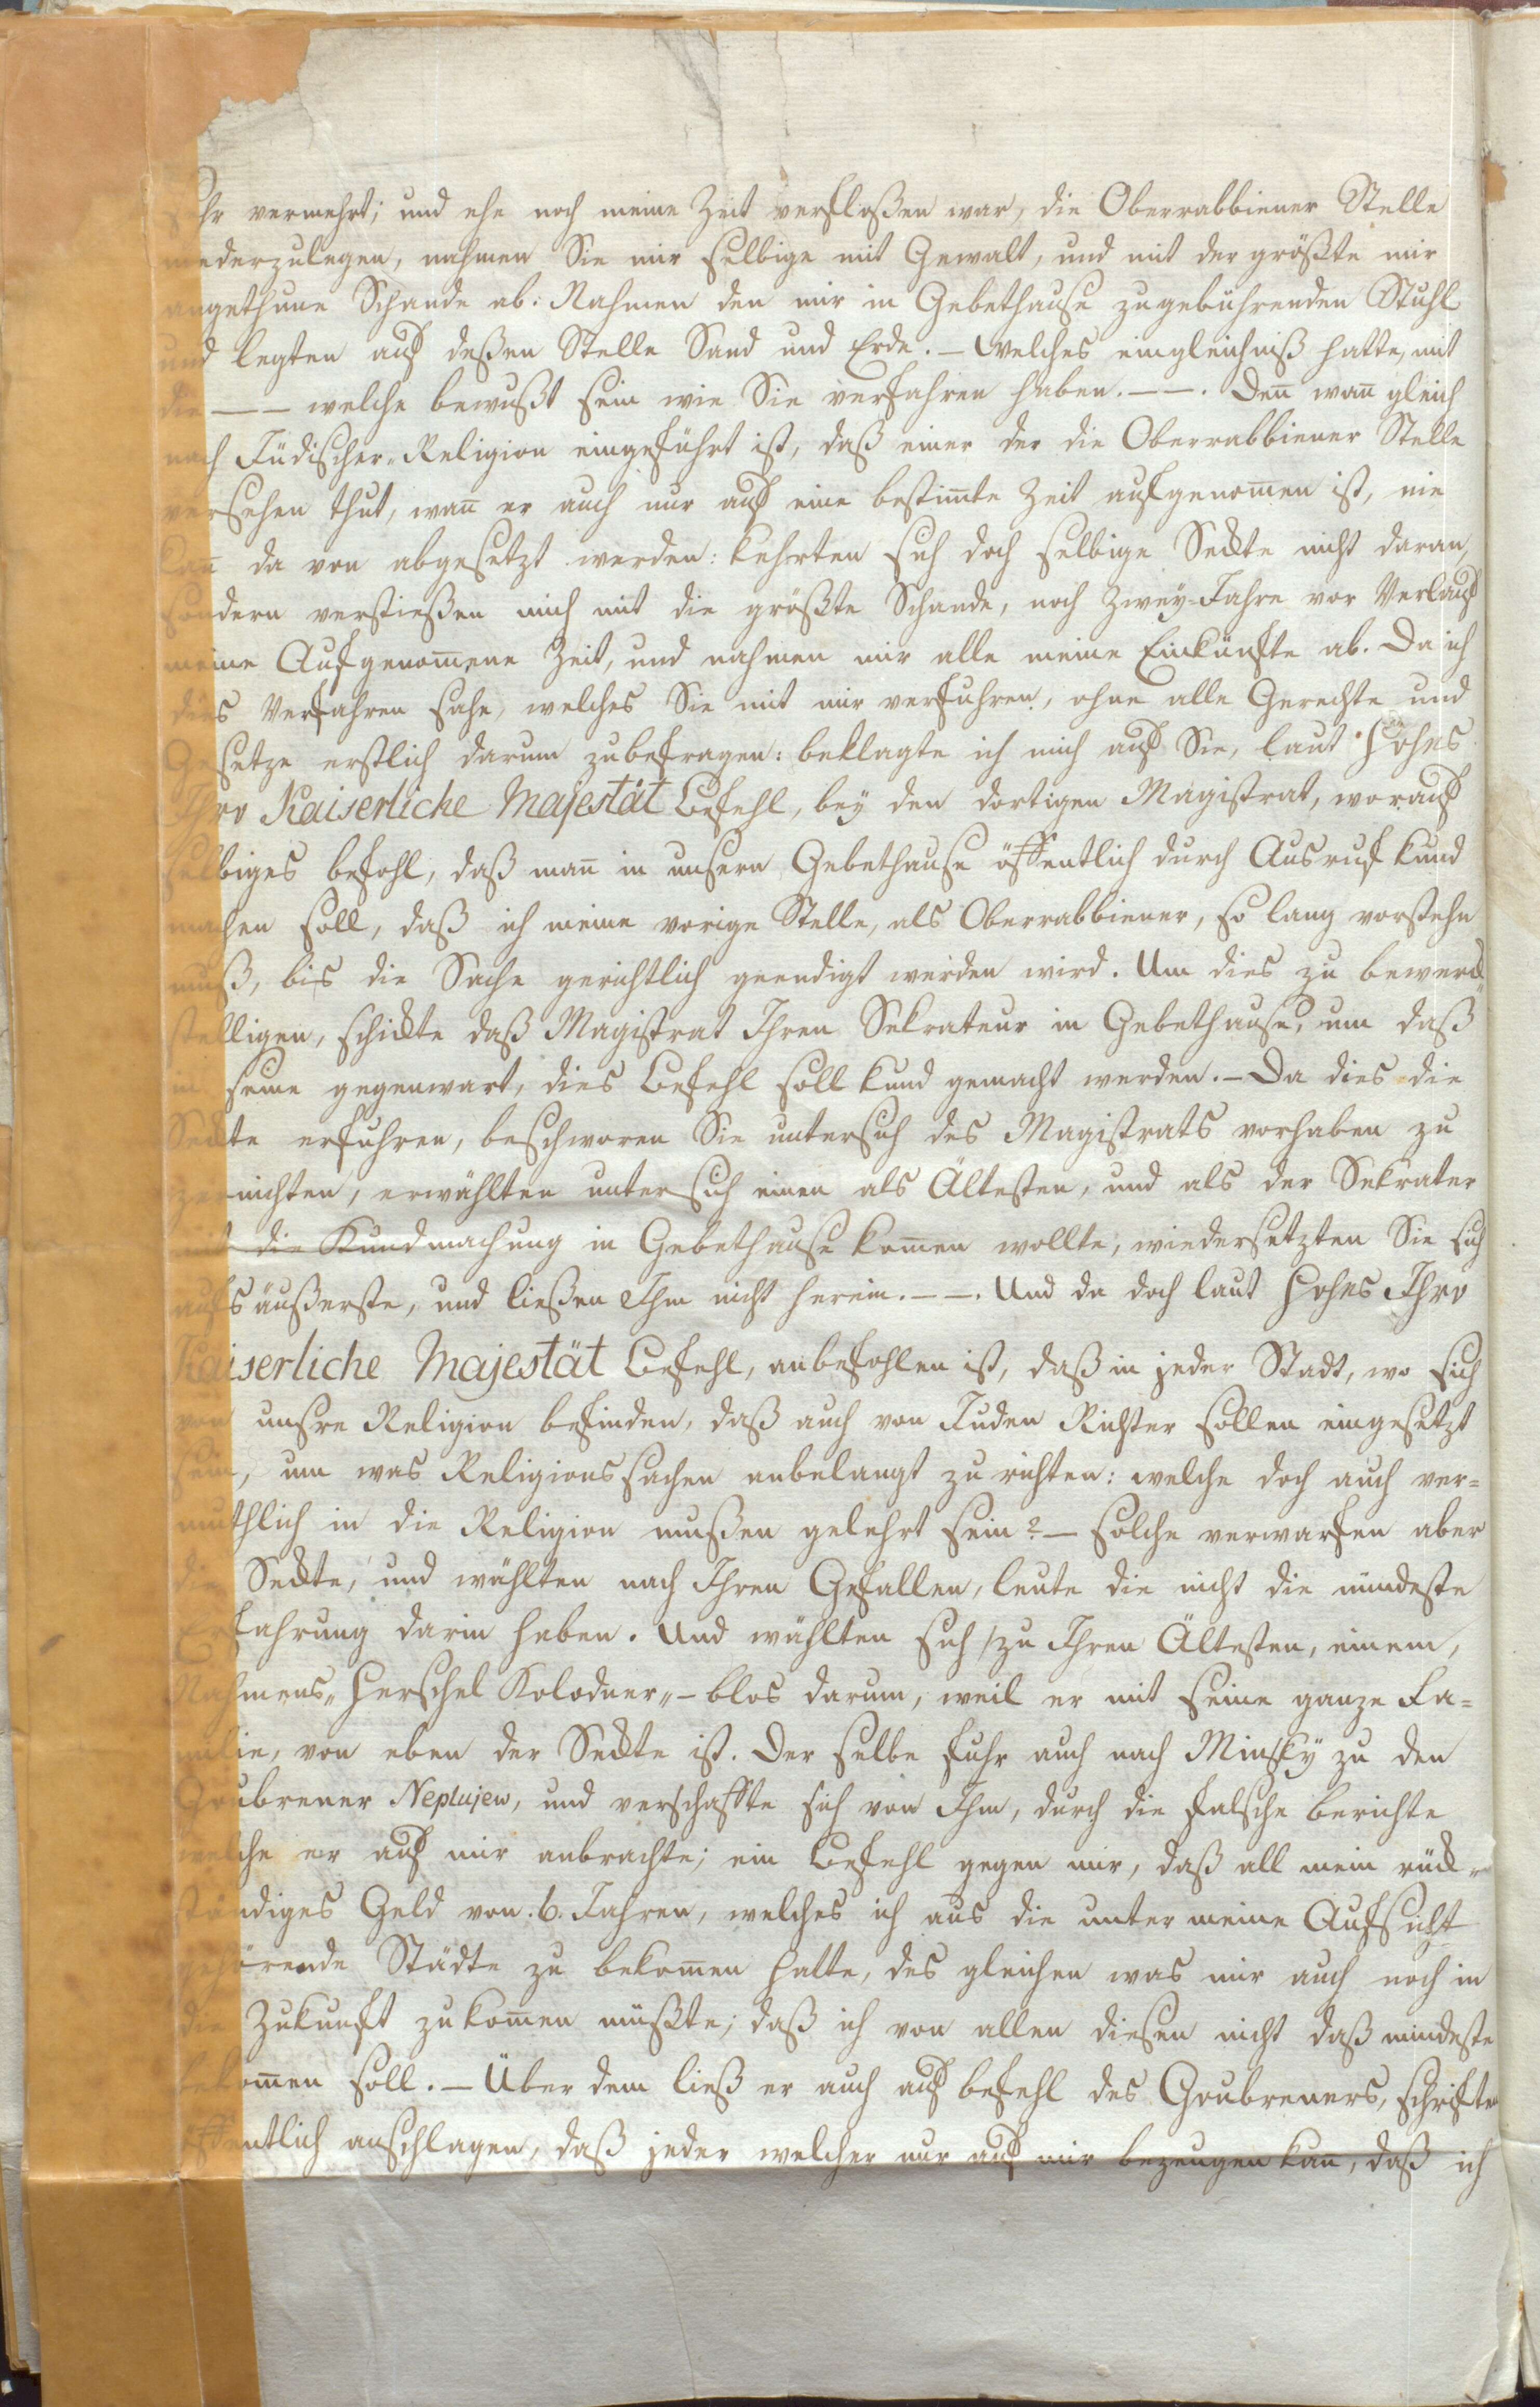 sehr vermehrt; und ehe noch meine Zeit verfloßen war, die Oberrabbiener Stelle
niederzulegen, nahmen Sie mir selbige mit Gewalt, und mit der größte mir
angethune Schande ab. Nahmen den mir in Gebethause zugebührenden Stuhl
und legten auf deßen Stelle Sand und Erde. — Welches eingleichniß hatte, mit
die — — welche bewußt sein wie Sie verfahren haben. — —. Den̅ wan̅ gleich
nach Jüdischer-Religion eingeführt ist, daß einer der die Oberrabbiener Stelle
versehen thut, wan̅ er auch nur auf eine bestim̅te Zeit aufgenom̅en ist, nie
kan̅ da von abgesetzt werden: kehrten sich doch selbige Seckte nicht daran,
sondern verstießen mich mit die größte Schande, noch Zwey-Jahre vor Verlauf
meine Aufgenom̅ene Zeit, und nahmen mir alle meine Einkünfte ab. Da ich
dies Verfahren sahe, welches Sie mit mir verfuhren, ohne alle Gerechte und
Gesetze erstlich darum zubefragen: beklagte ich mich auf Sie, laut Hohes
Ihro Kaiserliche Majestät Befehl, bey den dortigen Magistrat, worauf
selbiges befohl, daß man̅ in unsern Gebethause öffentlich durch Ausruf kund
machen soll, daß ich meine vorige Stelle, als Oberrabbiener, so lang vorstehn
muß, bis die Sache gerichtlich geendigt werden wird. Um dies zu bewerck„
stelligen, schickte daß Magistrat Ihren Sekrateur in Gebethause, um daß
in seine gegenwart, dies Befehl soll kund gemacht werden. — Da dies die
Seckte erfuhren, beschworen Sie untersich des Magistrats vorhaben zu
zernichten, erwählten untersich einen als Ältesten, und als der Sekrater
mit die Kundmachung in Gebethause kom̅en wollte, wiedersetzten Sie sich
aufs äußerste, und ließen Ihm nicht herein. — —. Und da doch laut Hohes Ihro
Kaiserliche Majestät Befehl, anbefohlen ist, daß in jeder Stadt, wo sich
von unsre Religion befinden, daß auch von Juden Richter sollen eingesetzt
sein, um was Religionssachen anbelangt zu richten: welche doch auch ver=
muthlich in die Religion mußen gelehrt sein? — solche verwarfen aber
die Seckte, und wählten nach Ihren Gefallen, leute die nicht die mindeste
Erfahrung darin haben. Und wählten sich zu Ihren Ältesten, einem,
Nahmens „Herschel Kolodner„ — blos darum, weil er mit seine ganze Fa=
milie, von eben der Seckte ist. Der selbe fuhr auch nach Minsky zu den
Goubrener Neplujew, und verschaffte sich von Ihm, durch die falsche berichte
welche er auf mir anbrachte; ein Befehl gegen mir, daß all mein rück„
ständiges Geld von .6. Jahren, welches ich aus die unter meine Aufsicht
gehörende Städte zu bekom̅en hatte, des gleichen was mir auch noch in
die Zukunft zu kom̅en müßte; daß ich von allen diesen nicht daß mindeste
bekom̅en soll. — Über dem ließ er auch auf befehl des Goubreners, schriften
öffentlich anschlagen, daß jeder welcher nur auf mir bezeugen kan̅, daß ich